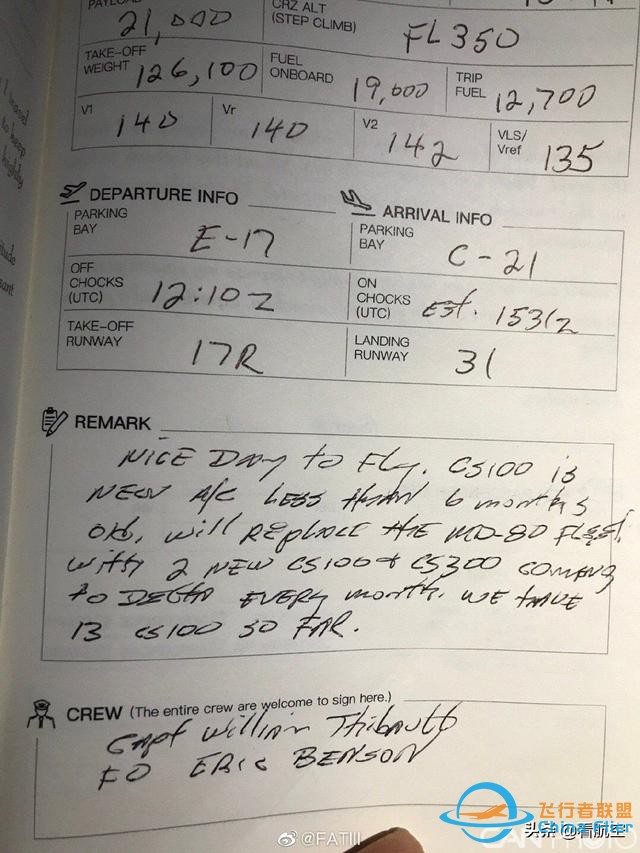 PAYLOAD 21,000 CRZ ALT (STEP CLIMB) FL350
TAKE-OFF WEIGHT 126,100 FUEL ONBOARD 19,000 TRIP FUEL 12,700
V1 140 Vr 140 V2 142 VLS/Vref 135
DEPARTURE INFO ARRIVAL INFO
PARKING BAY E-17 PARKING BAY C-21
OFF CHOCKS (UTC) 12:10Z ON CHOCKS (UTC) Est. 1531Z
TAKE-OFF RUNWAY 17R LANDING RUNWAY 31
REMARK
NICE DAY to Fly. CS100 is
NEW A/C LESS than 6 months
old, will REPLACE the MD-80 Fleet.
with 2 NEW CS100 & CS300 coming
to DELTA EVERY month. WE HAVE
13 CS100 SO FAR.
CREW (The entire crew are welcome to sign here.)
Capt William Thibault
FO ERIC BENSON
@FATIII
头条 @看航空
飞行者联盟
China Flier